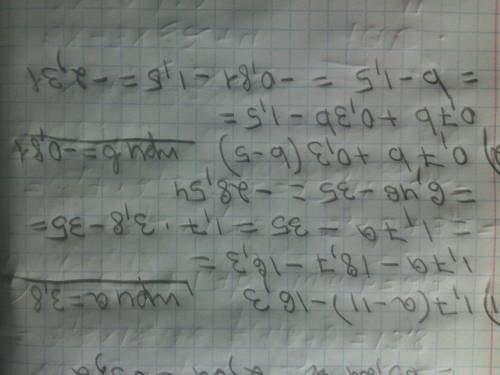 1) 1,7(a-11)-16,3 при a=3,8
1,7a - 18,7 - 16,3 =
= 1,7a - 35 = 1,7 · 3,8 - 35 =
= 6,46 - 35 = -28,54
2) 0,7b + 0,3(b-5) при b=-0,81
0,7b + 0,3b - 1,5 =
= b - 1,5 = -0,81 - 1,5 = -2,31